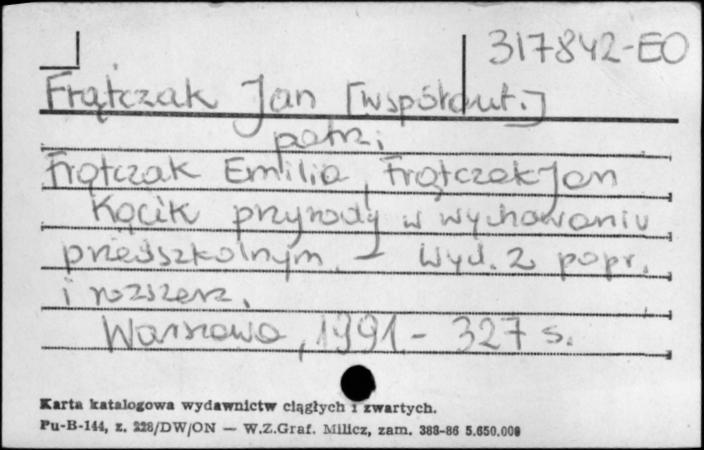 317842-EO
Frątczak Jan [współaut.]
patrz:
Frątczak Emilia, Frątczak Jan
Kącik przyrody w wychowaniu
przedszkolnym. - Wyd. 2 popr.
i rozszerz.
Warszawa, 1991. - 327 s.
Karta katalogowa wydawnictw ciągłych i zwartych.
Pu-B-144, z. 228/DW/ON — W.Z.Graf. Milicz, zam. 388-86 5.650.000